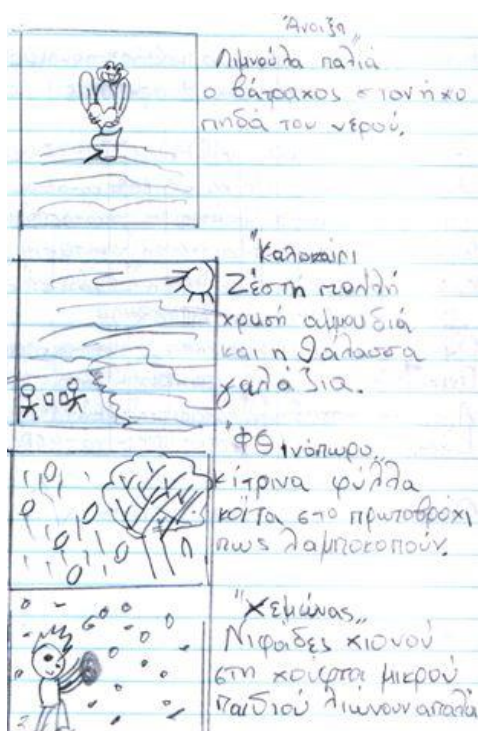 Άνοιξη"
Λιμνούλα παλιά
ο βάτραχος στον ήχο
πηδά του νερού.
"Καλοκαίρι
Ζέστη πολλή
χρυσή αμμουδιά
και η θάλασσα
γαλάζια.
"Φθινόπωρο"
κίτρινα φύλλα
κοίτα στο πρωτοβρόχι
πως λαμποκοπούν.
"Χεμώνας"
Νιφάδες χιονού
στη χούφτα μικρού
παιδιού λιώνουν απαλά